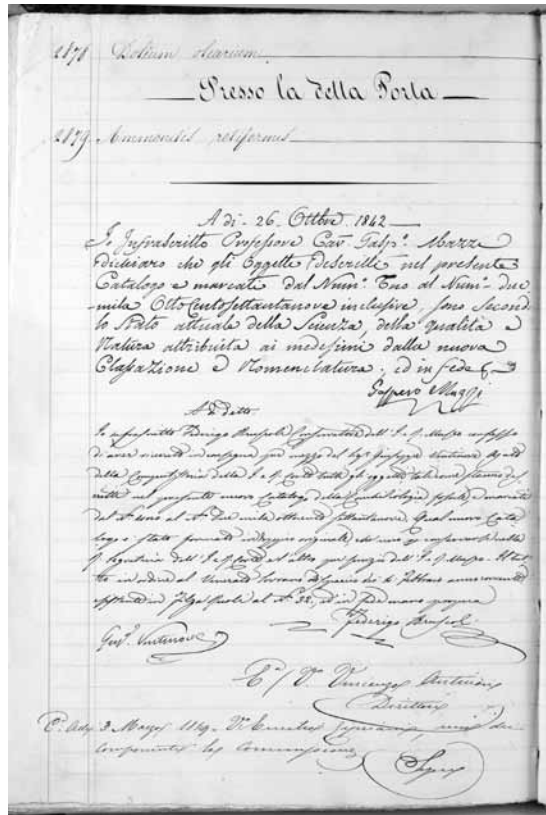 2878 Dolium olearium
Presso la detta Porta
2879 Ammonites retiformis
A di 26 Ottbre 1842
Io Infrascritto Professore Cav. Gasp.o Mazzi
dichiaro che gli Oggetti descritti nel presente
Catalogo e marcati dal Num.o Uno al Num.o due
mila Otto Cento settantanove inclusive, sono Second.
lo Stato attuale della Scienza, della qualità e
Natura attribuita ai medesimi dalla nuova
Classazione e Nomenclatura; ed in fede
Gaspero Mazzi
A di detto
Io infrascritto Federigo Bruscoli Conservatore dell' I. e R. Museo confesso
di aver ricevuto in consegna per mezzo del Sig.r Giuseppe
della Computisteria della I. e R. Corte tutti gli oggetti tali come stanno des
critti nel presente nuovo Catalogo della Conchiliologia fossile, e marcati
dal N.o uno al N.o Due mila ottocento settantanove. Qual nuovo Cata
logo è stato formato in doppio originale, che uno si conserverà nella
Segreteria dell' I. e R. Corte, e l'altro presso dell' I. e R. Museo. Il tut
to in ordine al Sovrano
al N.o 32, ed in fede mano propria
Federigo Bruscoli
V. Vincenzo Antinori
Direttore
3 Marzo 1849. uno dei
componenti la Commissione